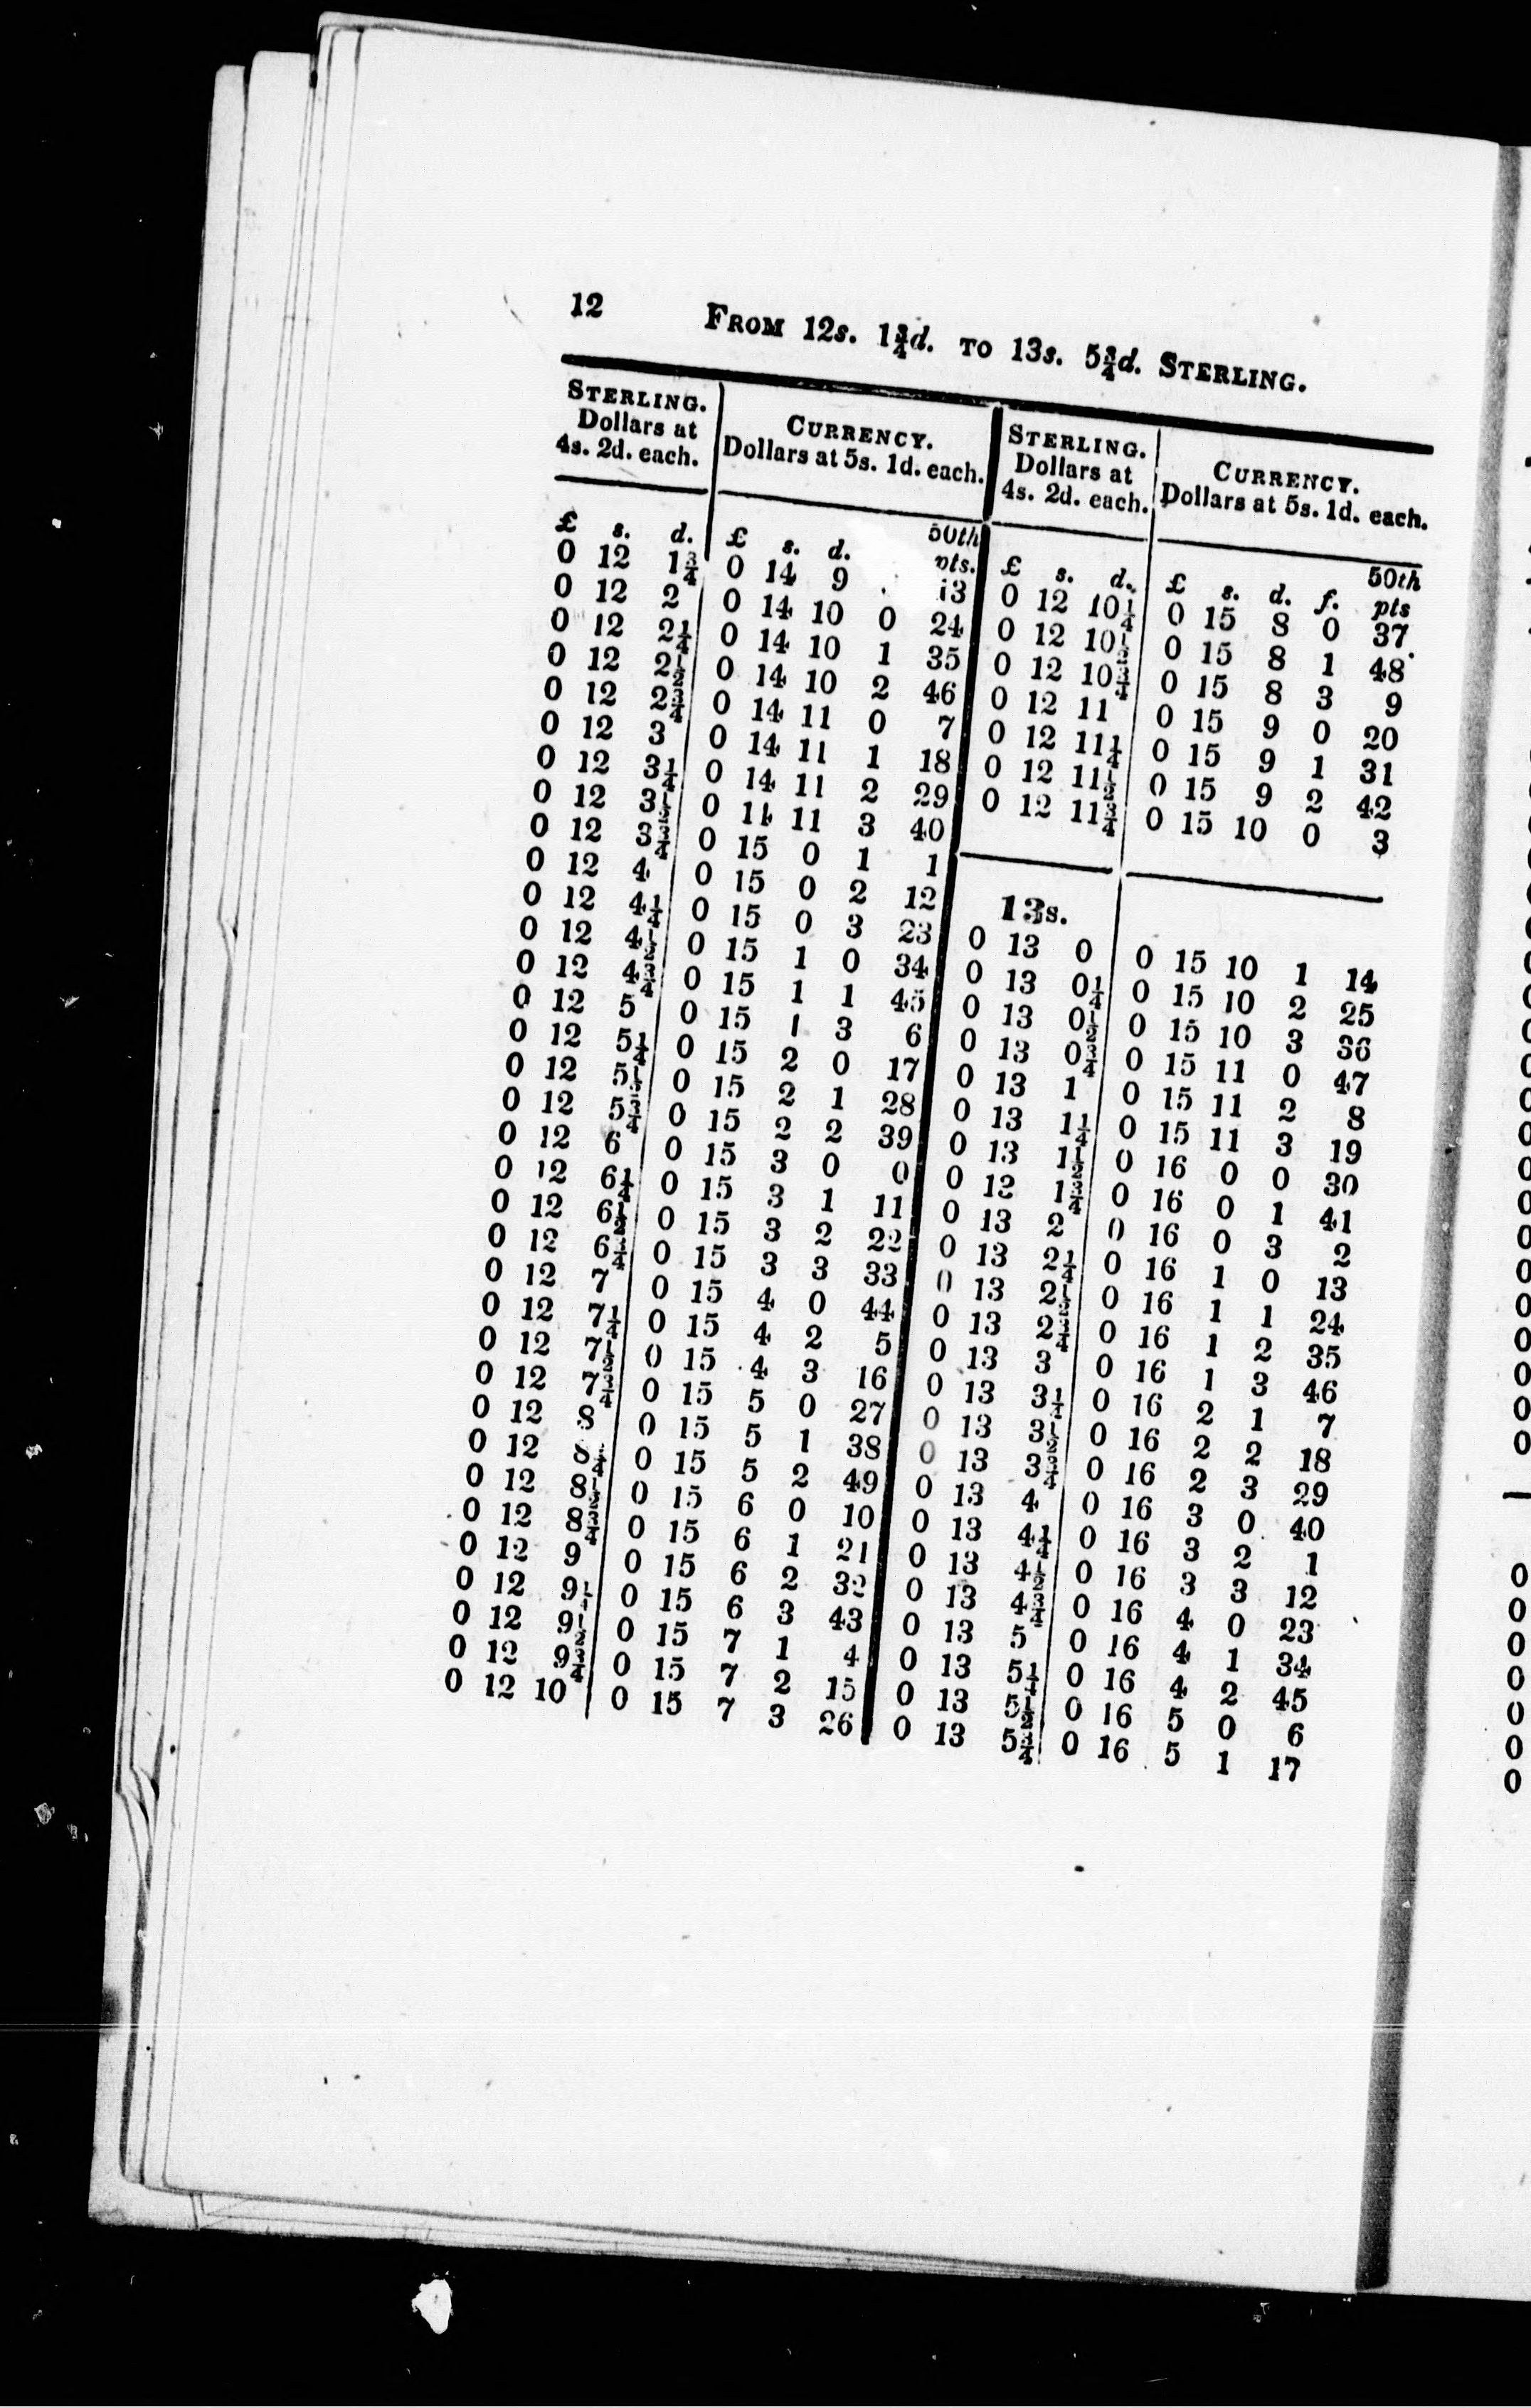 12 FROM 12s. 1¾d. TO 13s. 5¾d. STERLING.
STERLING.
Dollars at
4s. 2d. each.
CURRENCY.
Dollars at 5s. 1d. each.
£ s. d. £ s. d. 50th pts.
0 12 1¾ 0 14 9 13
0 12 2 0 14 10 0 24
0 12 2¼ 0 14 10 1 35
0 12 2½ 0 14 10 2 46
0 12 2¾ 0 14 11 0 7
0 12 3 0 14 11 1 18
0 12 3¼ 0 14 11 2 29
0 12 3½ 0 14 11 3 40
0 12 3¾ 0 15 0 1 1
0 12 4 0 15 0 2 12
0 12 4¼ 0 15 0 3 23
0 12 4½ 0 15 1 0 34
0 12 4¾ 0 15 1 1 45
0 12 5 0 15 1 3 6
0 12 5¼ 0 15 2 0 17
0 12 5½ 0 15 2 1 28
0 12 5¾ 0 15 2 2 39
0 12 6 0 15 3 0 0
0 12 6¼ 0 15 3 1 11
0 12 6½ 0 15 3 2 22
0 12 6¾ 0 15 3 3 33
0 12 7 0 15 4 0 44
0 12 7¼ 0 15 4 2 5
0 12 7½ 0 15 4 3 16
0 12 7¾ 0 15 5 0 27
0 12 8 0 15 5 1 38
0 12 8¼ 0 15 5 2 49
0 12 8½ 0 15 6 0 10
0 12 8¾ 0 15 6 1 21
0 12 9 0 15 6 2 32
0 12 9¼ 0 15 6 3 43
0 12 9½ 0 15 7 1 4
0 12 9¾ 0 15 7 2 15
0 12 10 0 15 7 3 26
STERLING.
Dollars at
4s. 2d. each.
CURRENCY.
Dollars at 5s. 1d. each.
£ s. d. £ s. d. f. 50th pts
0 12 10¼ 0 15 8 0 37
0 12 10½ 0 15 8 1 48
0 12 10¾ 0 15 8 3 9
0 12 11 0 15 9 0 20
0 12 11¼ 0 15 9 1 31
0 12 11½ 0 15 9 2 42
0 12 11¾ 0 15 10 0 3
13s.
0 13 0 0 15 10 1 14
0 13 0¼ 0 15 10 2 25
0 13 0½ 0 15 10 3 36
0 13 0¾ 0 15 11 0 47
0 13 1 0 15 11 2 8
0 13 1¼ 0 15 11 3 19
0 13 1½ 0 16 0 0 30
0 13 1¾ 0 16 0 1 41
0 13 2 0 16 0 3 2
0 13 2¼ 0 16 1 0 13
0 13 2½ 0 16 1 1 24
0 13 2¾ 0 16 1 2 35
0 13 3 0 16 1 3 46
0 13 3¼ 0 16 2 1 7
0 13 3½ 0 16 2 2 18
0 13 3¾ 0 16 2 3 29
0 13 4 0 16 3 0 40
0 13 4¼ 0 16 3 2 1
0 13 4½ 0 16 3 3 12
0 13 4¾ 0 16 4 0 23
0 13 5 0 16 4 1 34
0 13 5¼ 0 16 4 2 45
0 13 5½ 0 16 5 0 6
0 13 5¾ 0 16 5 1 17